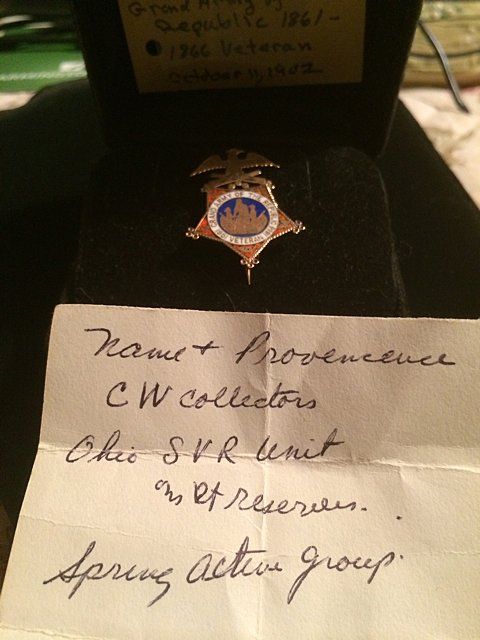 Grand Army of
Republic 1861-
1866 Veteran
October 11, 1902
GRAND ARMY OF THE REPUBLIC
1861 VETERAN 1866
Name + Provenience
CW collectors
Ohio SVR Unit
Rt reserves.
Spring active group.